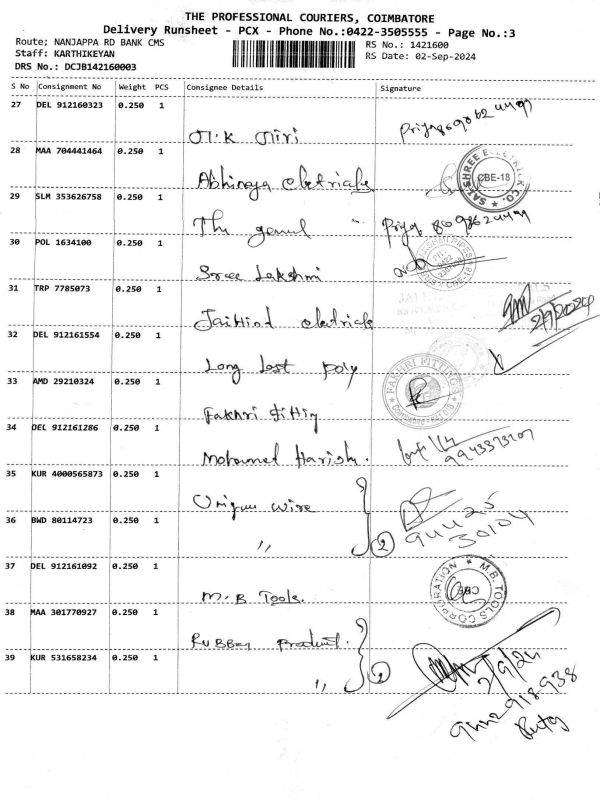 THE PROFESSIONAL COURIERS, COIMBATORE
Delivery Runsheet - PCX - Phone No.:0422-3505555 - Page No.:3
Route; NANJAPPA RD BANK CMS
RS No.: 1421600
Staff: KARTHIKEYAN
RS Date: 02-Sep-2024
DRS No.: DCJB142160003
S No Consignment No Weight PCS Consignee Details Signature
27 DEL 912160323 0.250 1
28 MAA 704441464 0.250 1
Abhinaya eletricals
SAI SHREE ELEVATER CO. CBE-18
29 SLM 353626758 0.250 1
The
30 POL 1634100 0.250 1
Sree Lakshmi
31 TRP 7785073 0.250 1
JaiHind eletricals
2/9/2024
32 DEL 912161554 0.250 1
Long Last poly
33 AMD 29210324 0.250 1
Fakhri fittig
FAKHRI FITTINGS
34 DEL 912161286 0.250 1
Mohamed Harish.
35 KUR 4000565873 0.250 1
wire
94425
30104
36 BWD 80114723 0.250 1
" 2
37 DEL 912161092 0.250 1
M. B. Tools.
M.B. TOOLS CORPORATION CBE
38 MAA 301770927 0.250 1
Rubber Product.
39 KUR 531658234 0.250 1
" 2
2/9/24